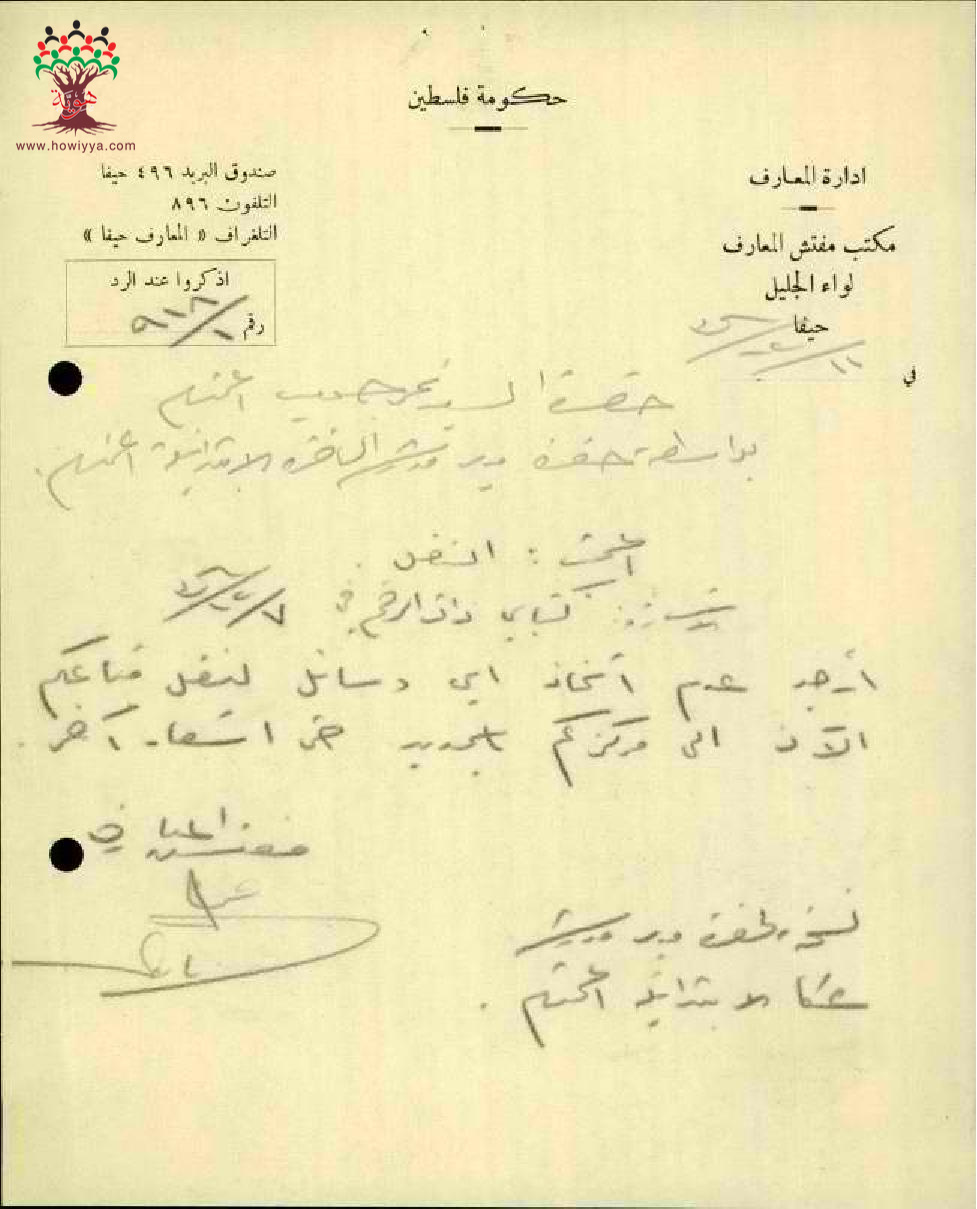 هوية
www.howiyya.com
حكومة فلسطين
ادارة المعارف
مكتب مفتش المعارف
لواء الجليل
حيفا
في ١١
صندوق البريد ٤٩٦ حيفا
التلفون ٨٩٦
التلغراف « المعارف حيفا »
اذكروا عند الرد
رقم
حضرة السيد نمر المحترم
بواسطة حضرة مدير مدرسة الناصرة الابتدائية المحترم .
المبحث : النقل .
كتابي ذات الرقم في
أرجو عدم اتخاذ اي وسائل لنقل متاعكم
الآن الى مركزكم الجديد حتى اشعار آخر .
مفتش المعارف
نسخة لحضرة مدير مدرسة
عكا الابتدائية المحترم .